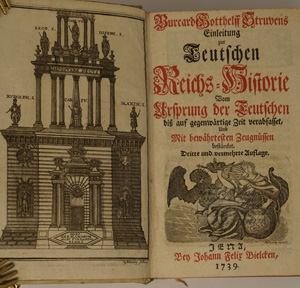 LEOP. I.
IOSEPH. I.
RVDOLPH. I.
MAXIM. I.
Burcard Gotthelff Struvens
Einleitung
zur
Teutschen
Reichs-Historie
Vom
Ursprung der Teutschen
biß auf gegenwärtige Zeit verabfasset,
Und
Mit bewährtesten Zeugnüssen
bestärcket.
Dritte und vermehrte Auflage.
JENA,
Bey Johann Felix Bielcken,
1739.